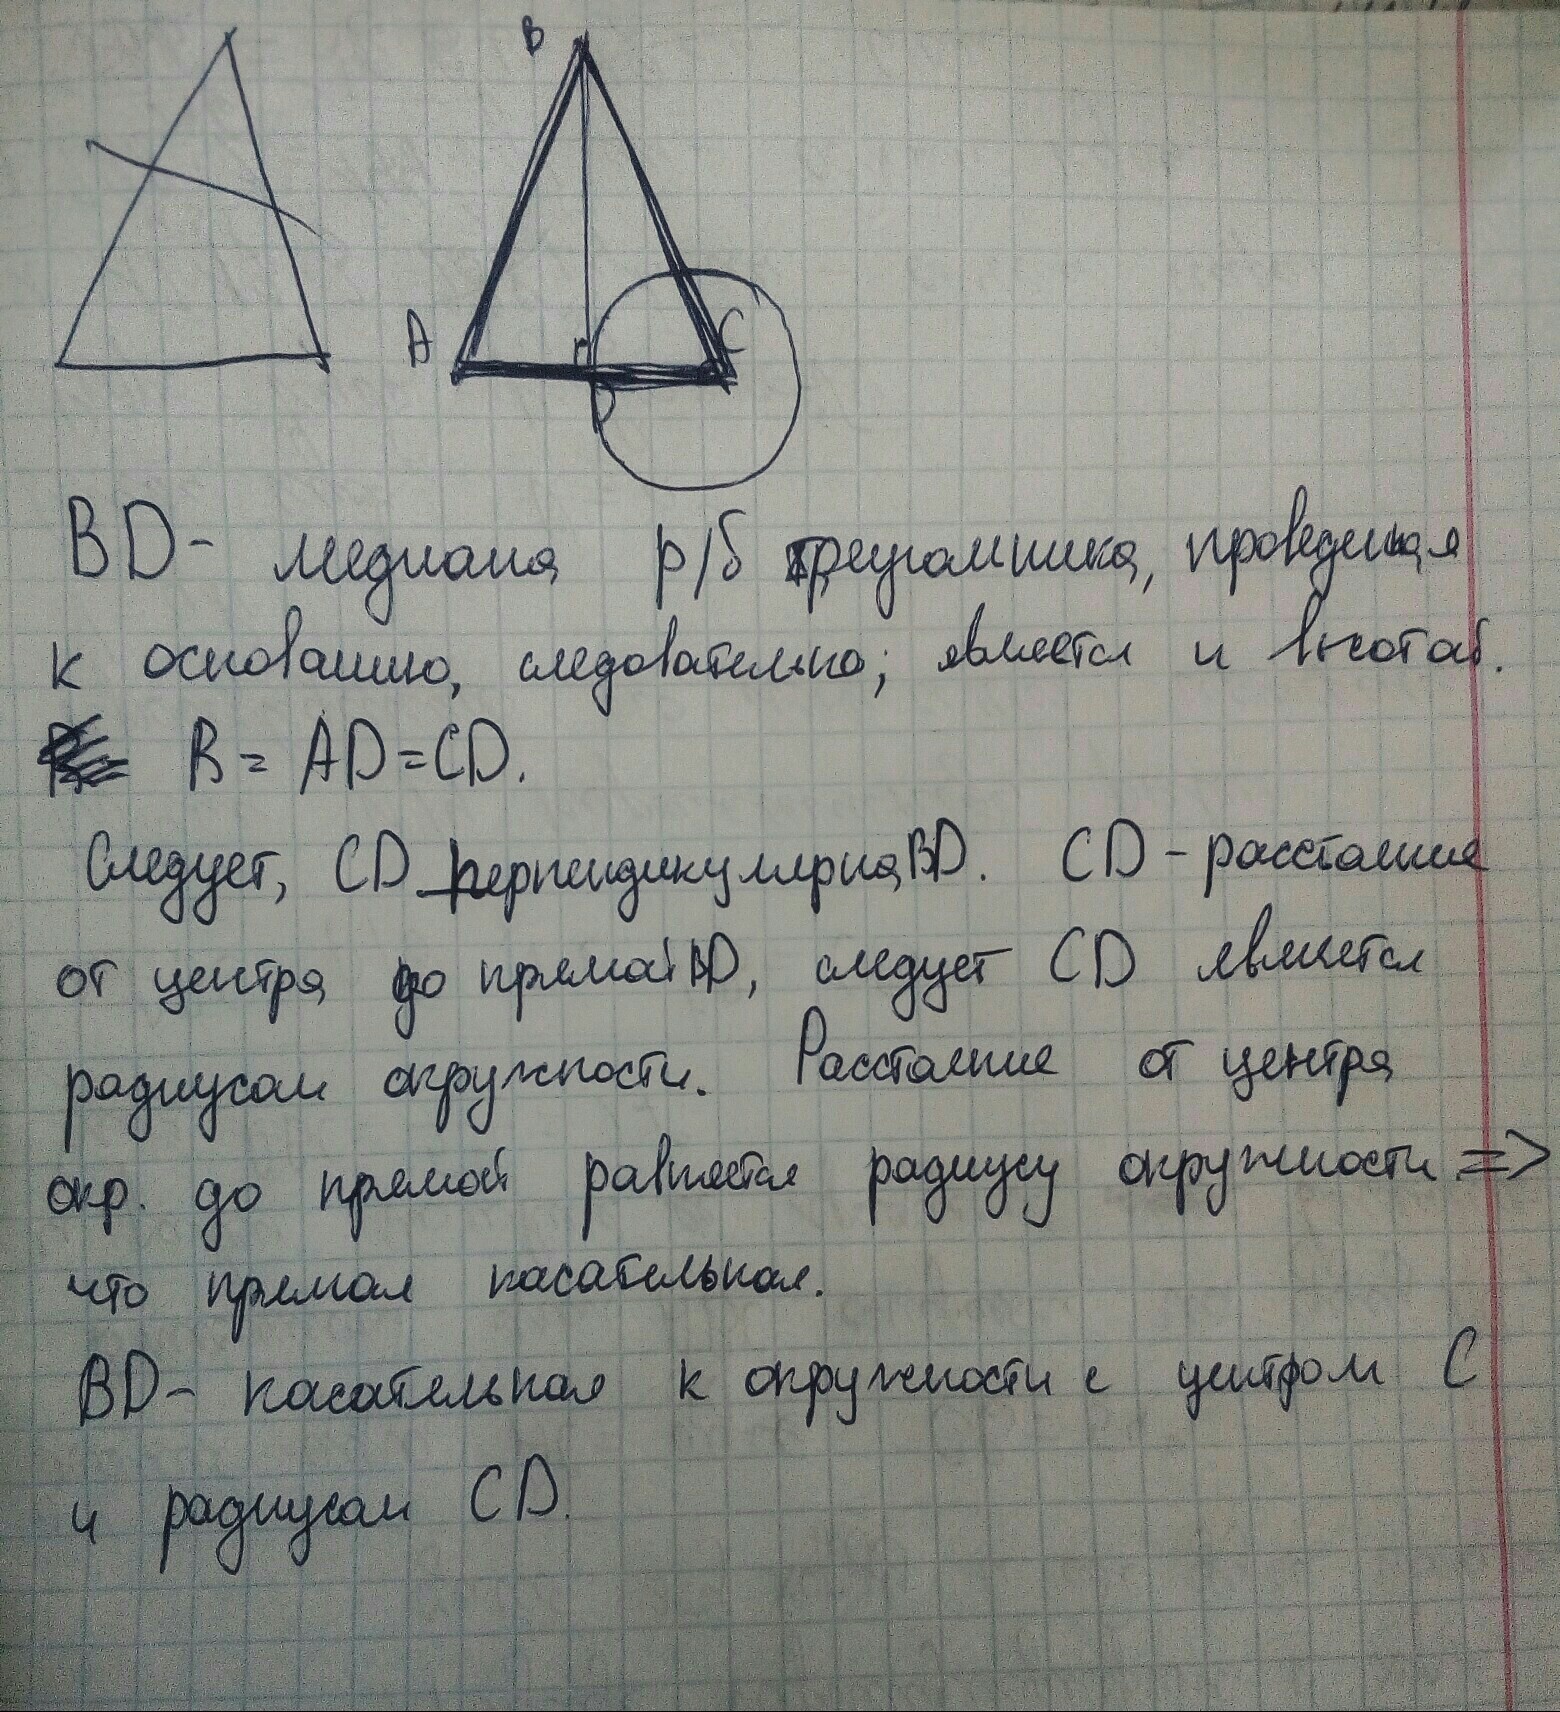 В
А
С
D
BD- медиана р/б треугольника, проведеная
к основанию, следовательно, является и высотой.
R = AD=CD.
Следует, CD перпендикулярна BD. CD - расстояние
от центра до прямой BD, следует CD является
радиусом окружности. Расстояние от центра
окр. до прямой равняется радиусу окружности =>
что прямая касательная.
BD- касательная к окружности с центром С
и радиусом CD.